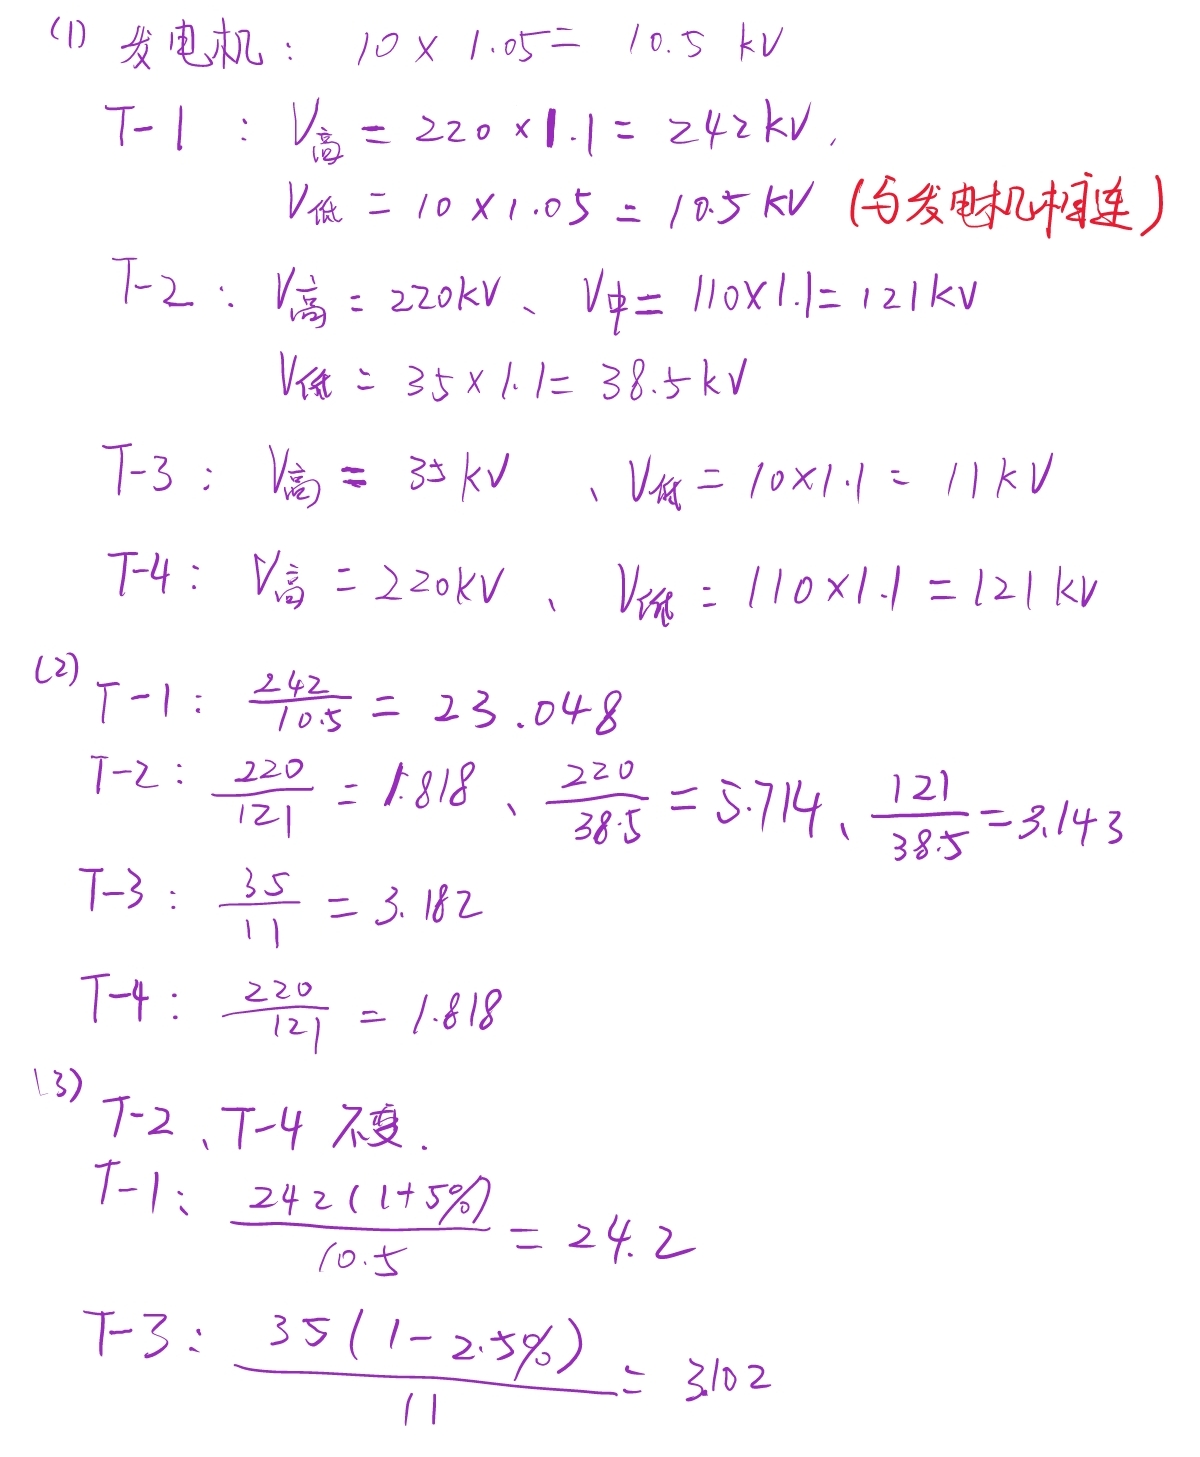 (1) 发电机: 10 × 1.05 = 10.5 kV
T-1 : V高 = 220 × 1.1 = 242 kV,
V低 = 10 × 1.05 = 10.5 kV (与发电机相连)
T-2 : V高 = 220kV、 V中 = 110×1.1 = 121kV
V低 = 35 × 1.1 = 38.5 kV
T-3 : V高 = 35 kV 、V低 = 10×1.1 = 11 kV
T-4 : V高 = 220kV 、 V低 = 110×1.1 = 121 kV
(2) T-1 : 242/10.5 = 23.048
T-2 : 220/121 = 1.818 、 220/38.5 = 5.714 、 121/38.5 = 3.143
T-3 : 35/11 = 3.182
T-4 : 220/121 = 1.818
(3) T-2 、T-4 不变.
T-1 : 242(1+5%)/10.5 = 24.2
T-3 : 35(1-2.5%)/11 = 3.102